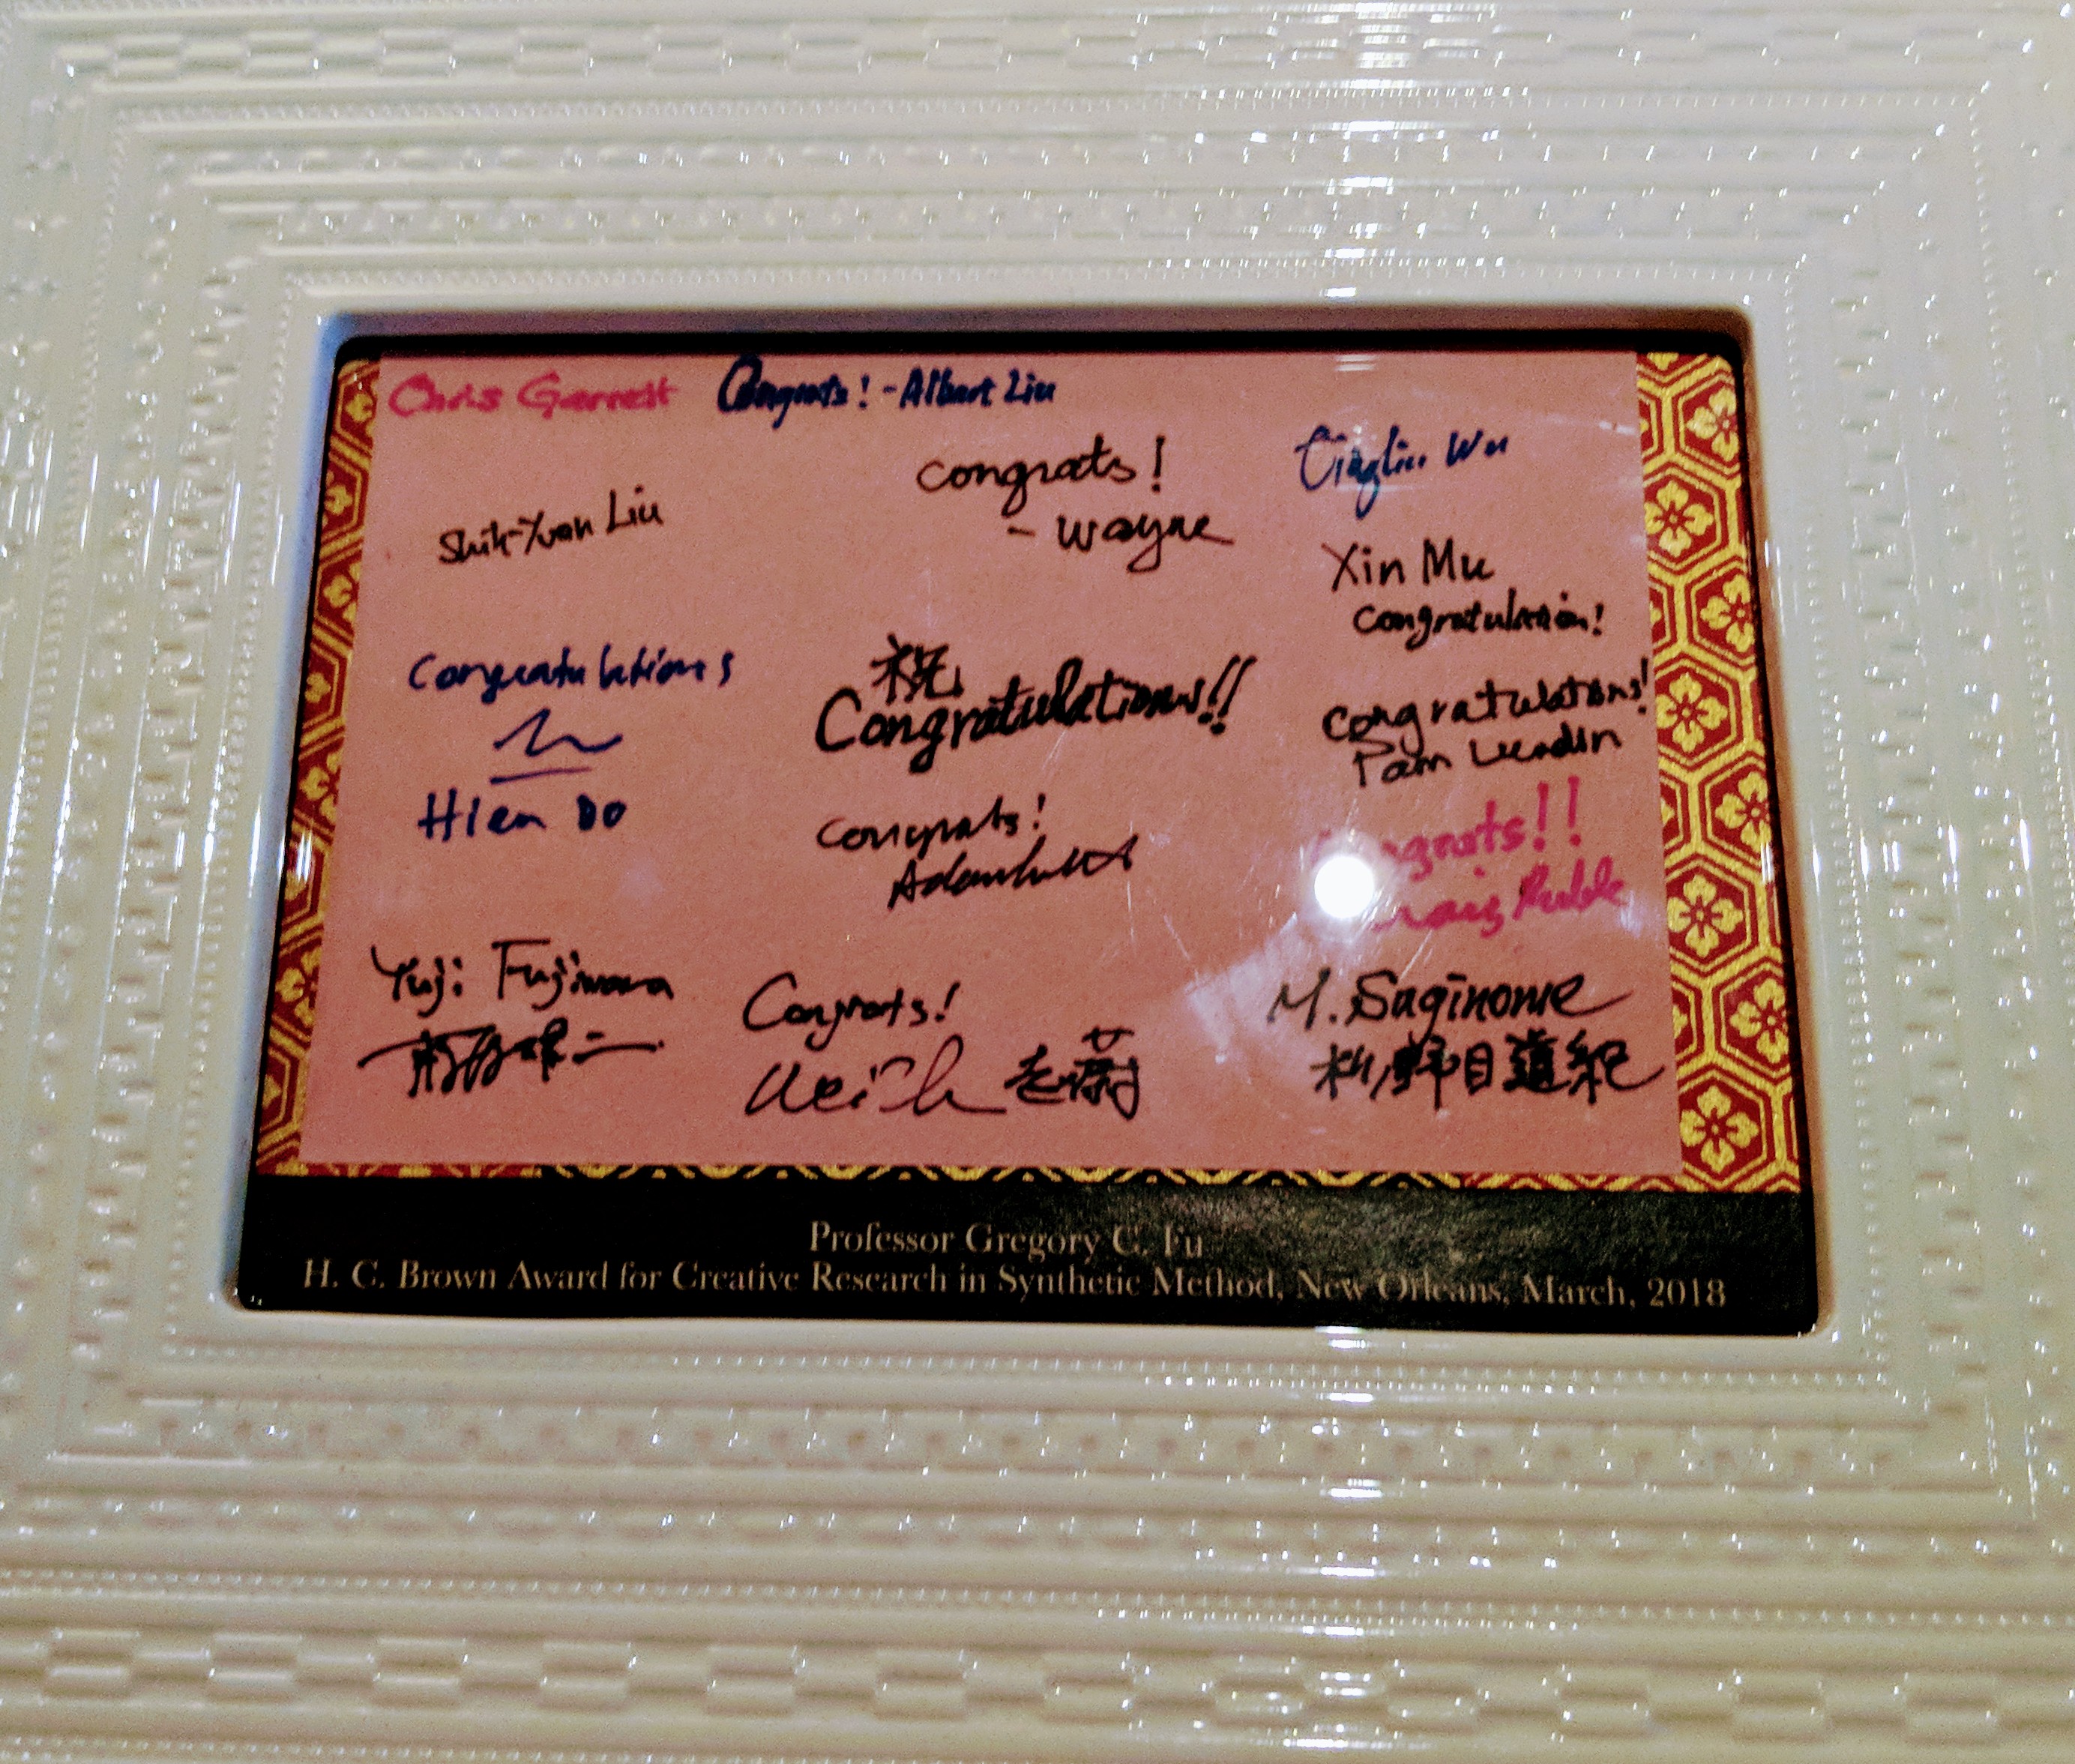 Chris Garrett
Congrats! - Albert Liu
Shih-Yuan Liu
congrats!
- Wayne
Wu
Xin Mu
Congratulation!
Congratulations
Hien Do
祝
Congratulations!!
Congratulations!
Pam
Congrats!
Congrats!!
Craig Ruble
Yuji Fujiwara
Congrats!
M. Suginome
杉野目道紀
Professor Gregory C. Fu
H. C. Brown Award for Creative Research in Synthetic Method, New Orleans, March, 2018